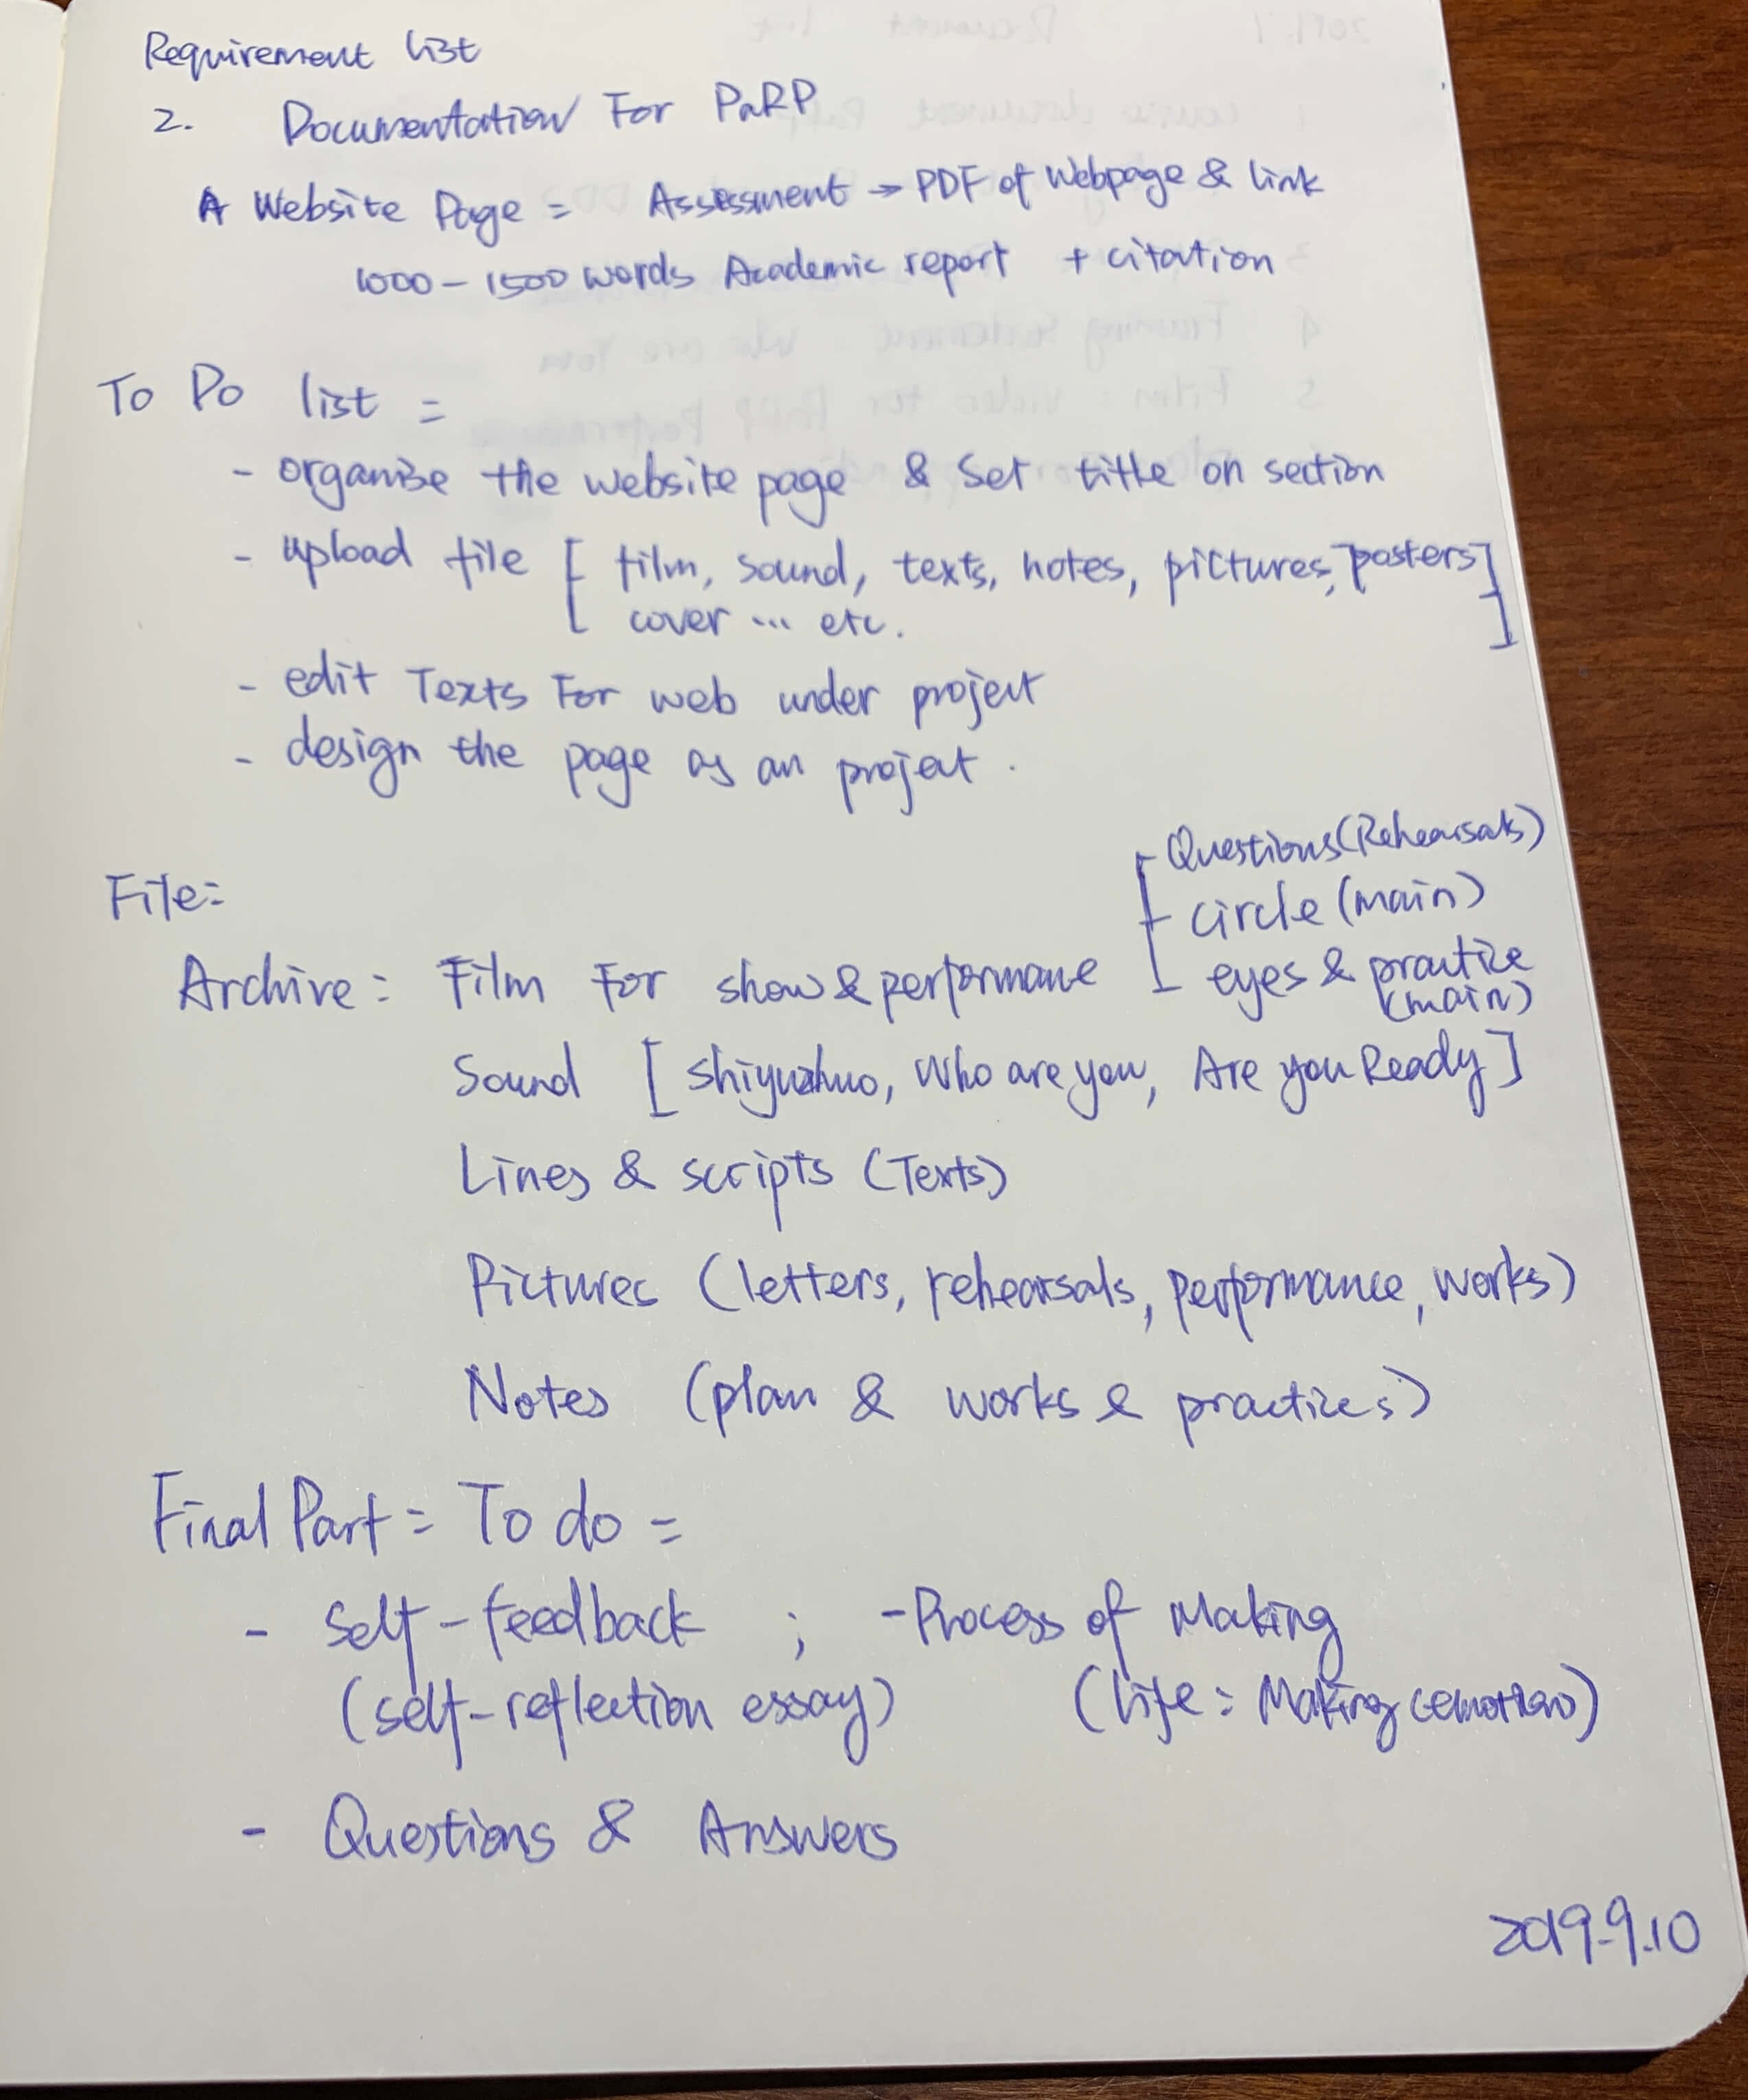 Requirement list
2. Documentation For PaRP
A Website Page = Assessment → PDF of Webpage & link
1000 - 1500 words Academic report + citation
To Do list =
- organise the website page & Set title on section
- upload file [ film, sound, texts, notes, pictures, posters]
cover ... etc. ]
- edit Texts For web under project
- design the page as an project.
File:
Archive: Film For show & performance
Questions (Rehearsals)
circle (main)
eyes & practice
(main)
Sound [ shiyuzhuo, Who are you, Are you Ready ]
Lines & scripts (Texts)
Pictures (letters, rehearsals, performance, works)
Notes (plan & works & practices)
Final Part = To do =
- Self-feedback ; - Process of Making
(self-reflection essay) (life = Making emotions)
- Questions & Answers
2019.9.10